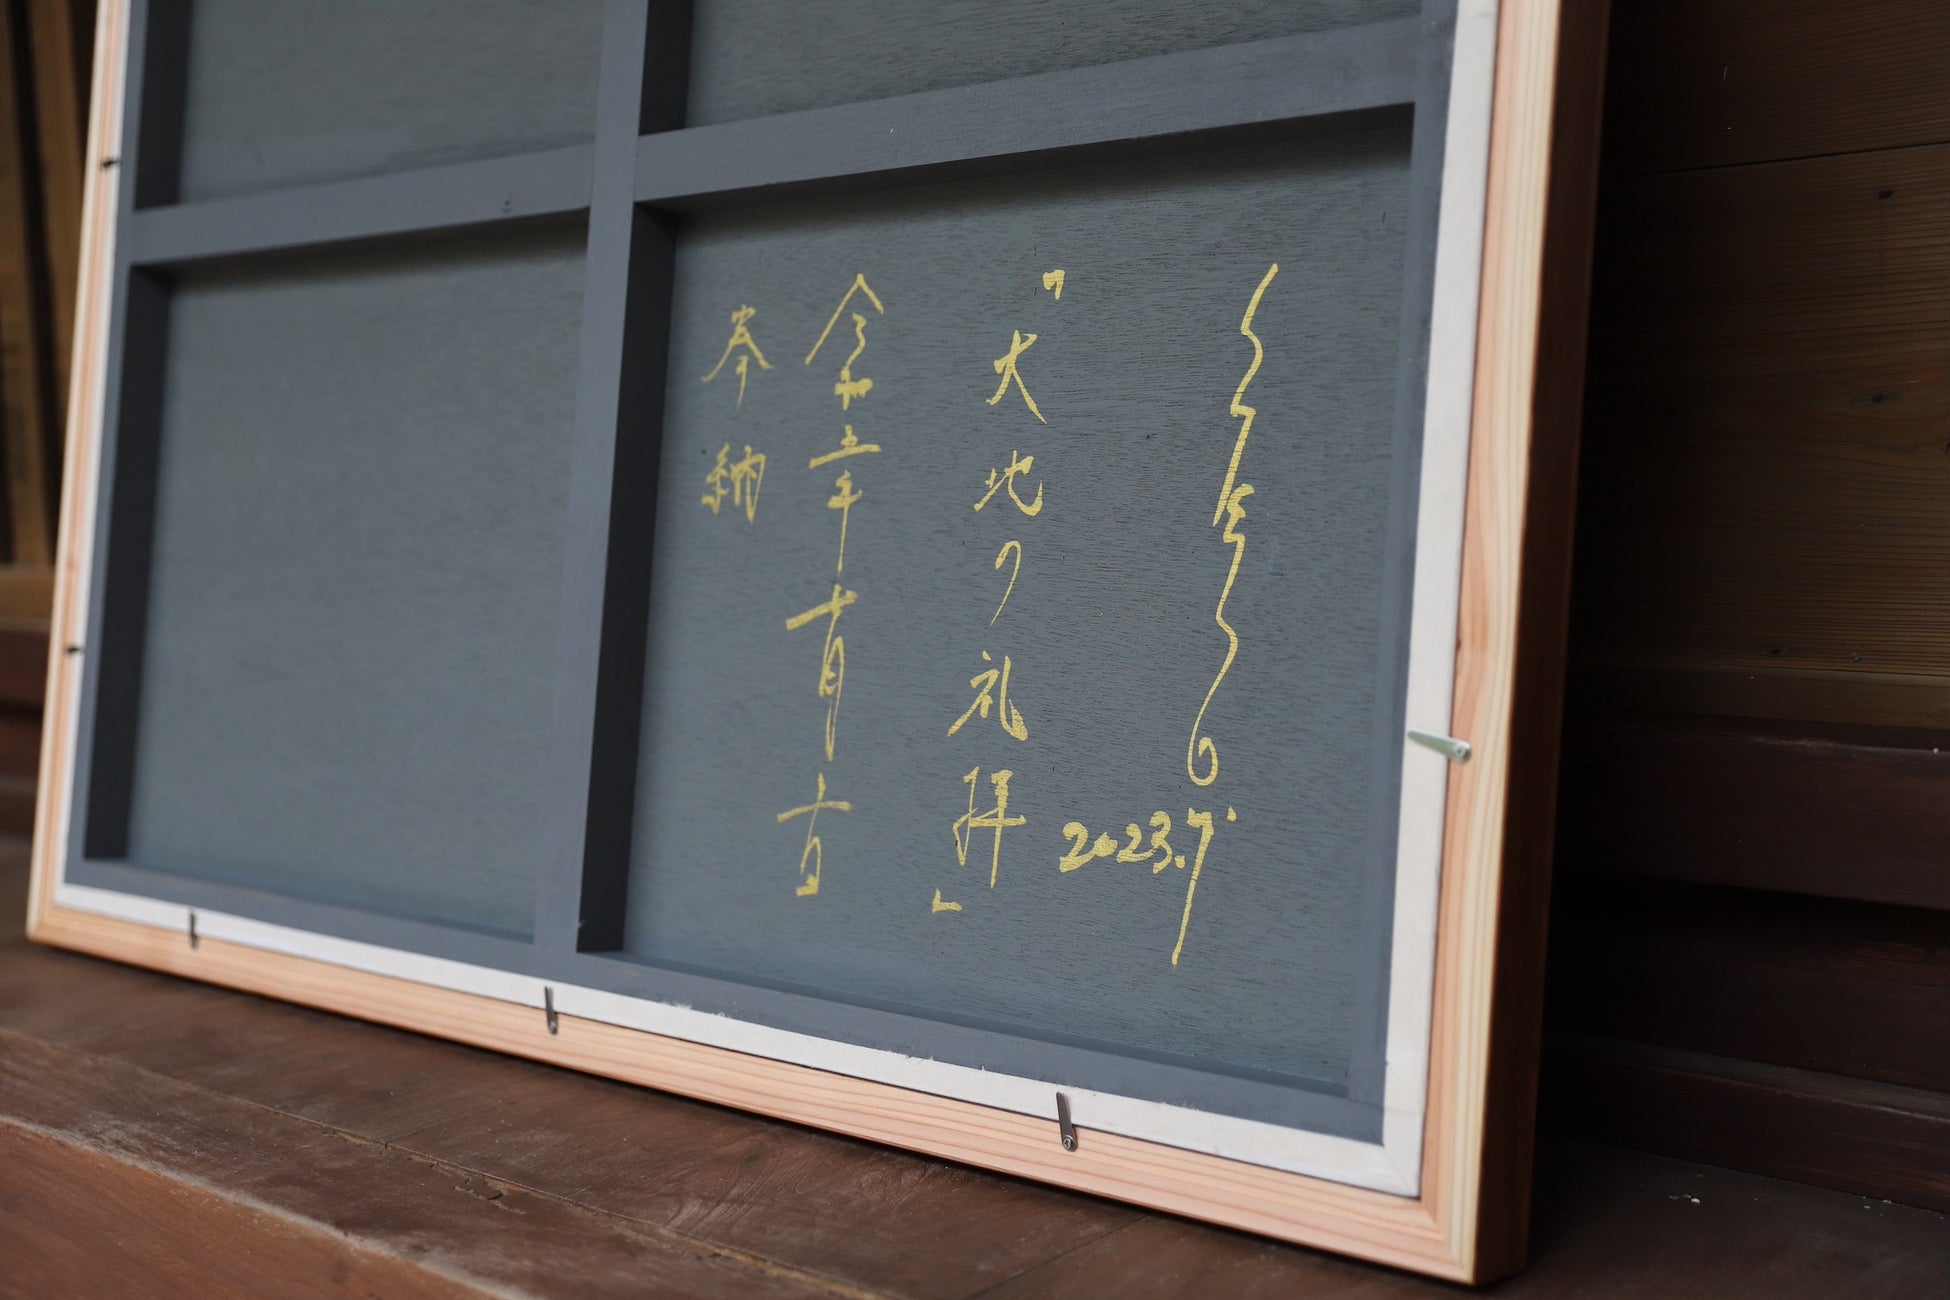 2023.7
「大地の礼拝」
令和五年十月十日
奉納